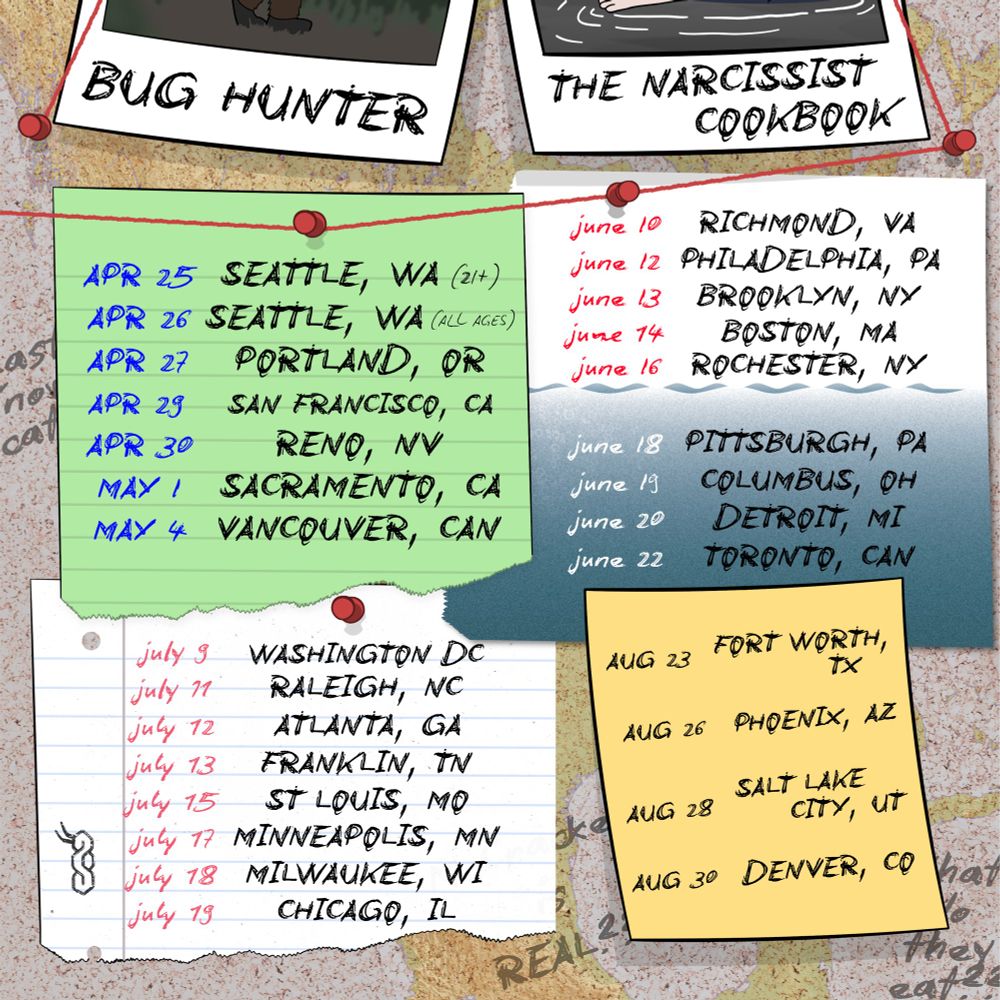 BUG HUNTER
THE NARCISSIST
COOKBOOK
APR 25 SEATTLE, WA (21+)
APR 26 SEATTLE, WA (ALL AGES)
APR 27 PORTLAND, OR
APR 29 SAN FRANCISCO, CA
APR 30 RENO, NV
MAY 1 SACRAMENTO, CA
MAY 4 VANCOUVER, CAN
june 10 RICHMOND, VA
june 12 PHILADELPHIA, PA
june 13 BROOKLYN, NY
june 14 BOSTON, MA
june 16 ROCHESTER, NY
june 18 PITTSBURGH, PA
june 19 COLUMBUS, OH
june 20 DETROIT, MI
june 22 TORONTO, CAN
july 9 WASHINGTON DC
july 11 RALEIGH, NC
july 12 ATLANTA, GA
july 13 FRANKLIN, TN
july 15 ST LOUIS, MO
july 17 MINNEAPOLIS, MN
july 18 MILWAUKEE, WI
july 19 CHICAGO, IL
AUG 23 FORT WORTH,
TX
AUG 26 PHOENIX, AZ
AUG 28 SALT LAKE
CITY, UT
AUG 30 DENVER, CO
REAL.
they